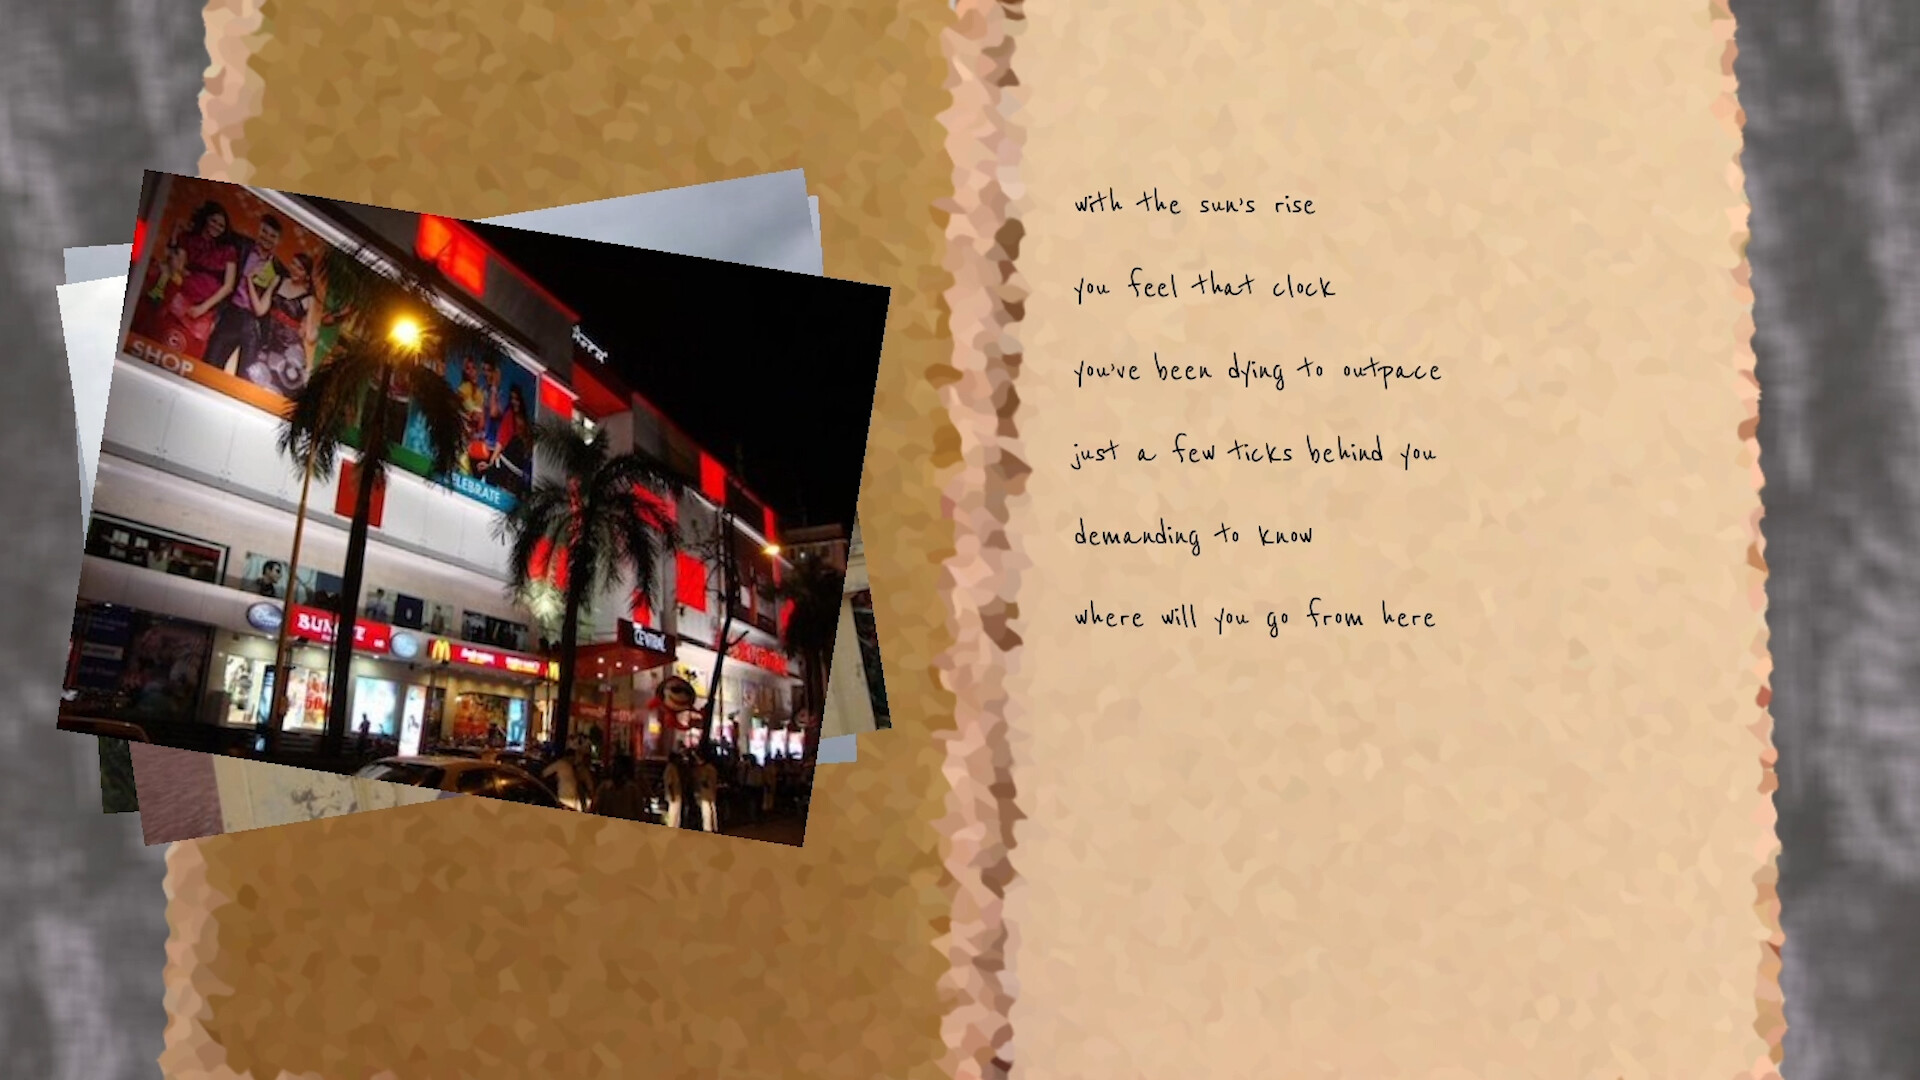 SHOP
CELEBRATE
CENTRAL
with the sun's rise
you feel that clock
you've been dying to outpace
just a few ticks behind you
demanding to know
where will you go from here